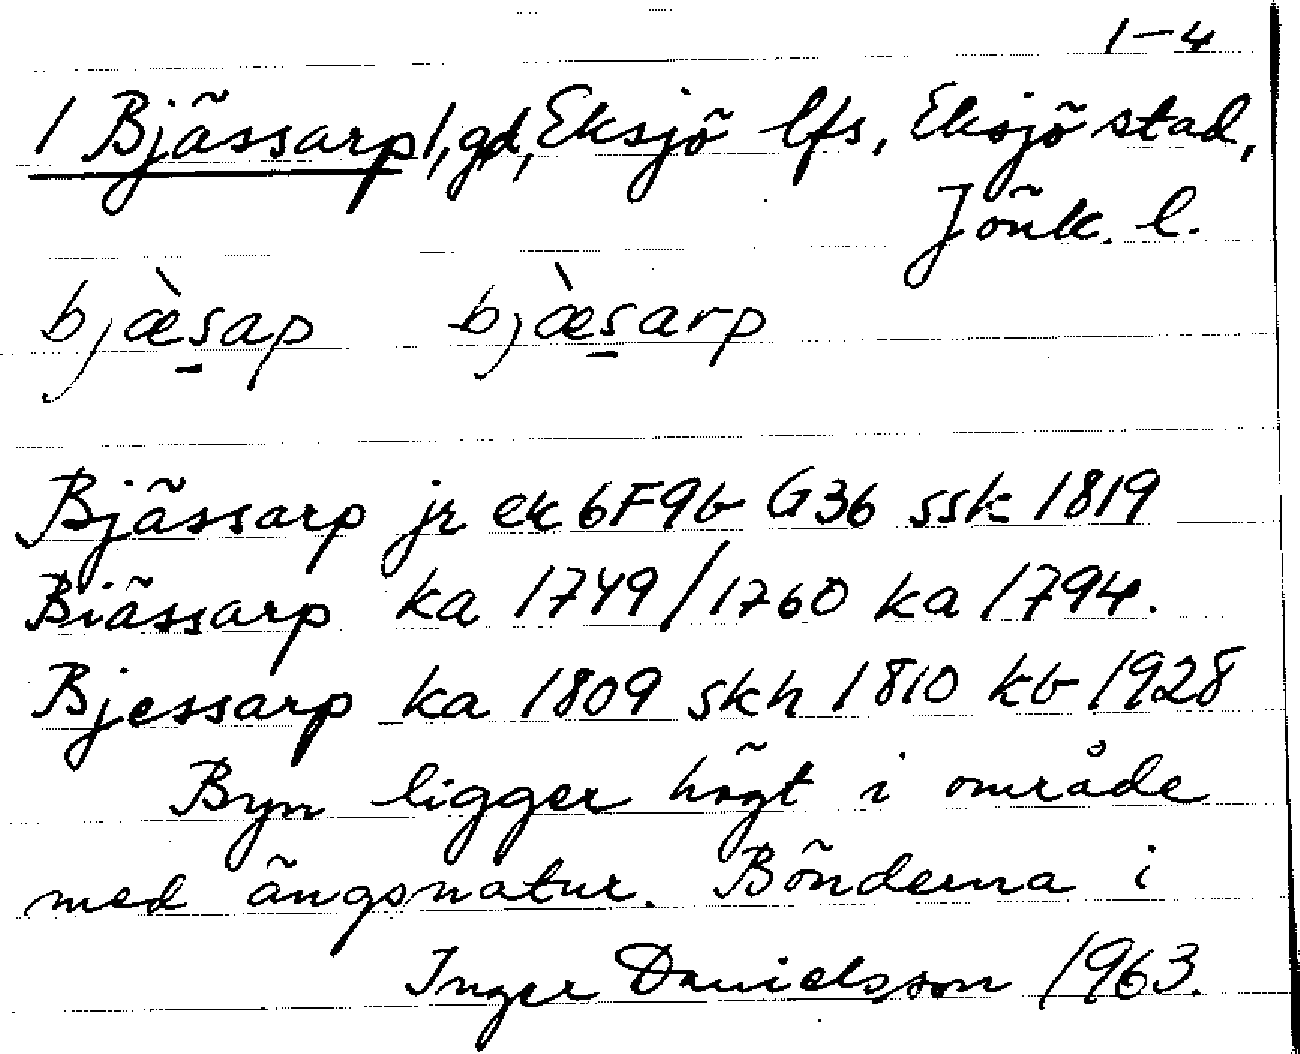 1-4
1 Bjässarp 1, gd, Eksjö lfs, Eksjö stad,
Jönk. l.
bjæ̀s̠ap bjæ̀s̠arp
Bjässarp jr ek 6F9b G36 ssk 1819
Biässarp ka 1749/1760 ka 1794.
Bjessarp ka 1809 skh 1810 kb 1928
Byn ligger högt i område
med ängsnatur. Bönderna i
Inger Danielsson 1963.